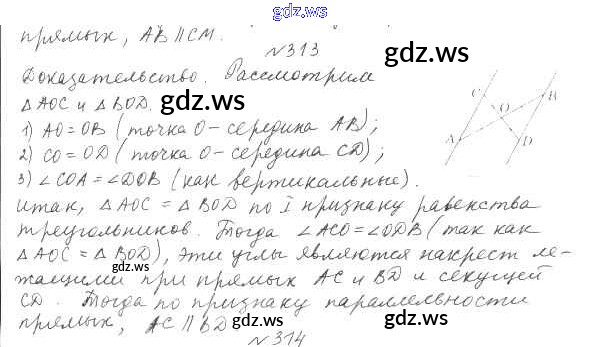 gdz.ws
прямых, AB ∥ CM. gdz.ws
N 313
Доказательство. Рассмотрим
△AOC и △BOD. gdz.ws
1) AO = OB (точка O - середина AB);
2) CO = OD (точка O - середина CD);
3) ∠COA = ∠DOB (как вертикальные).
Итак, △AOC = △BOD по I признаку равенства
треугольников. Тогда ∠ACO = ∠ODB (так как
△AOC = △BOD), эти углы являются накрест ле-
жащими при прямых AC и BD и секущей
CD. Тогда по признаку параллельности
прямых, AC ∥ BD
N 314
C
B
O
A
D
gdz.ws
gdz.ws
gdz.ws
gdz.ws